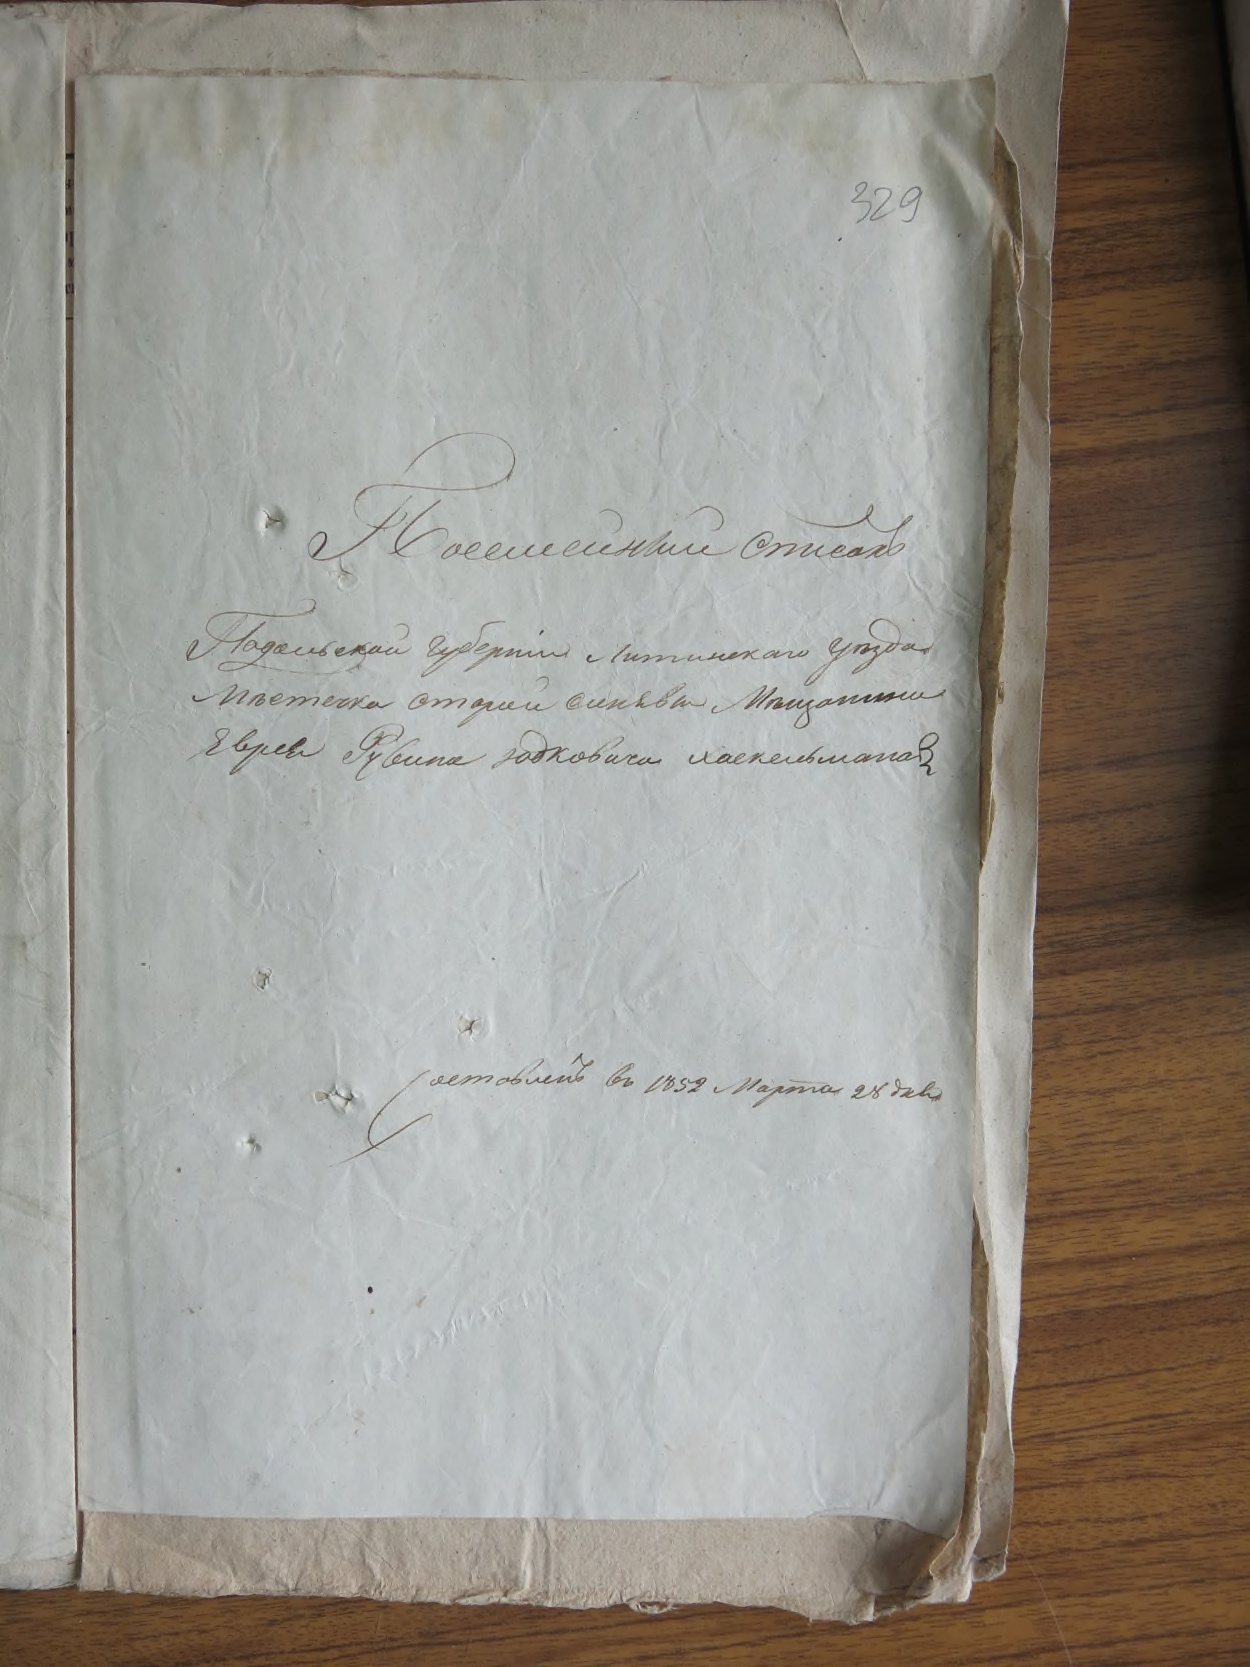 329
Посемейный списокъ
Подольской губерніи Литинскаго уѣзда
Мѣстечка старой синявы Мѣщанина
Еврея Рувина Іодковича Хаскельмана
Составленъ въ 1852 Марта 28 дня